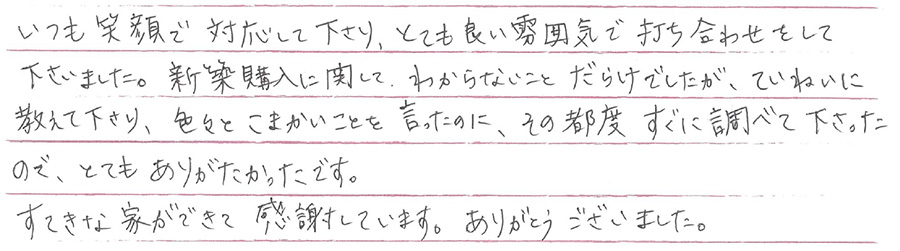 いつも笑顔で対応して下さり、とても良い雰囲気で打ち合わせをして
下さいました。新築購入に関して、わからないことだらけでしたが、ていねいに
教えて下さり、色々とこまかいことを言ったのに、その都度すぐに調べて下さった
ので、とてもありがたかったです。
すてきな家ができて感謝しています。ありがとうございました。